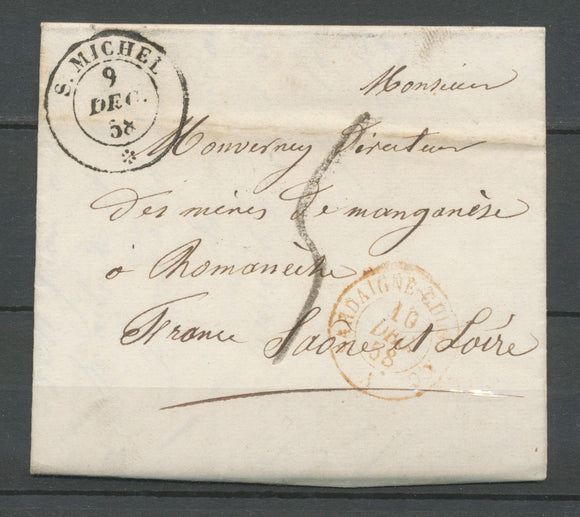 S. MICHEL
9
DEC.
58
Monsieur
Monverney Directeur
des mines de manganèse
à Romanèche
France Saône et Loire
5
10
DEC
58